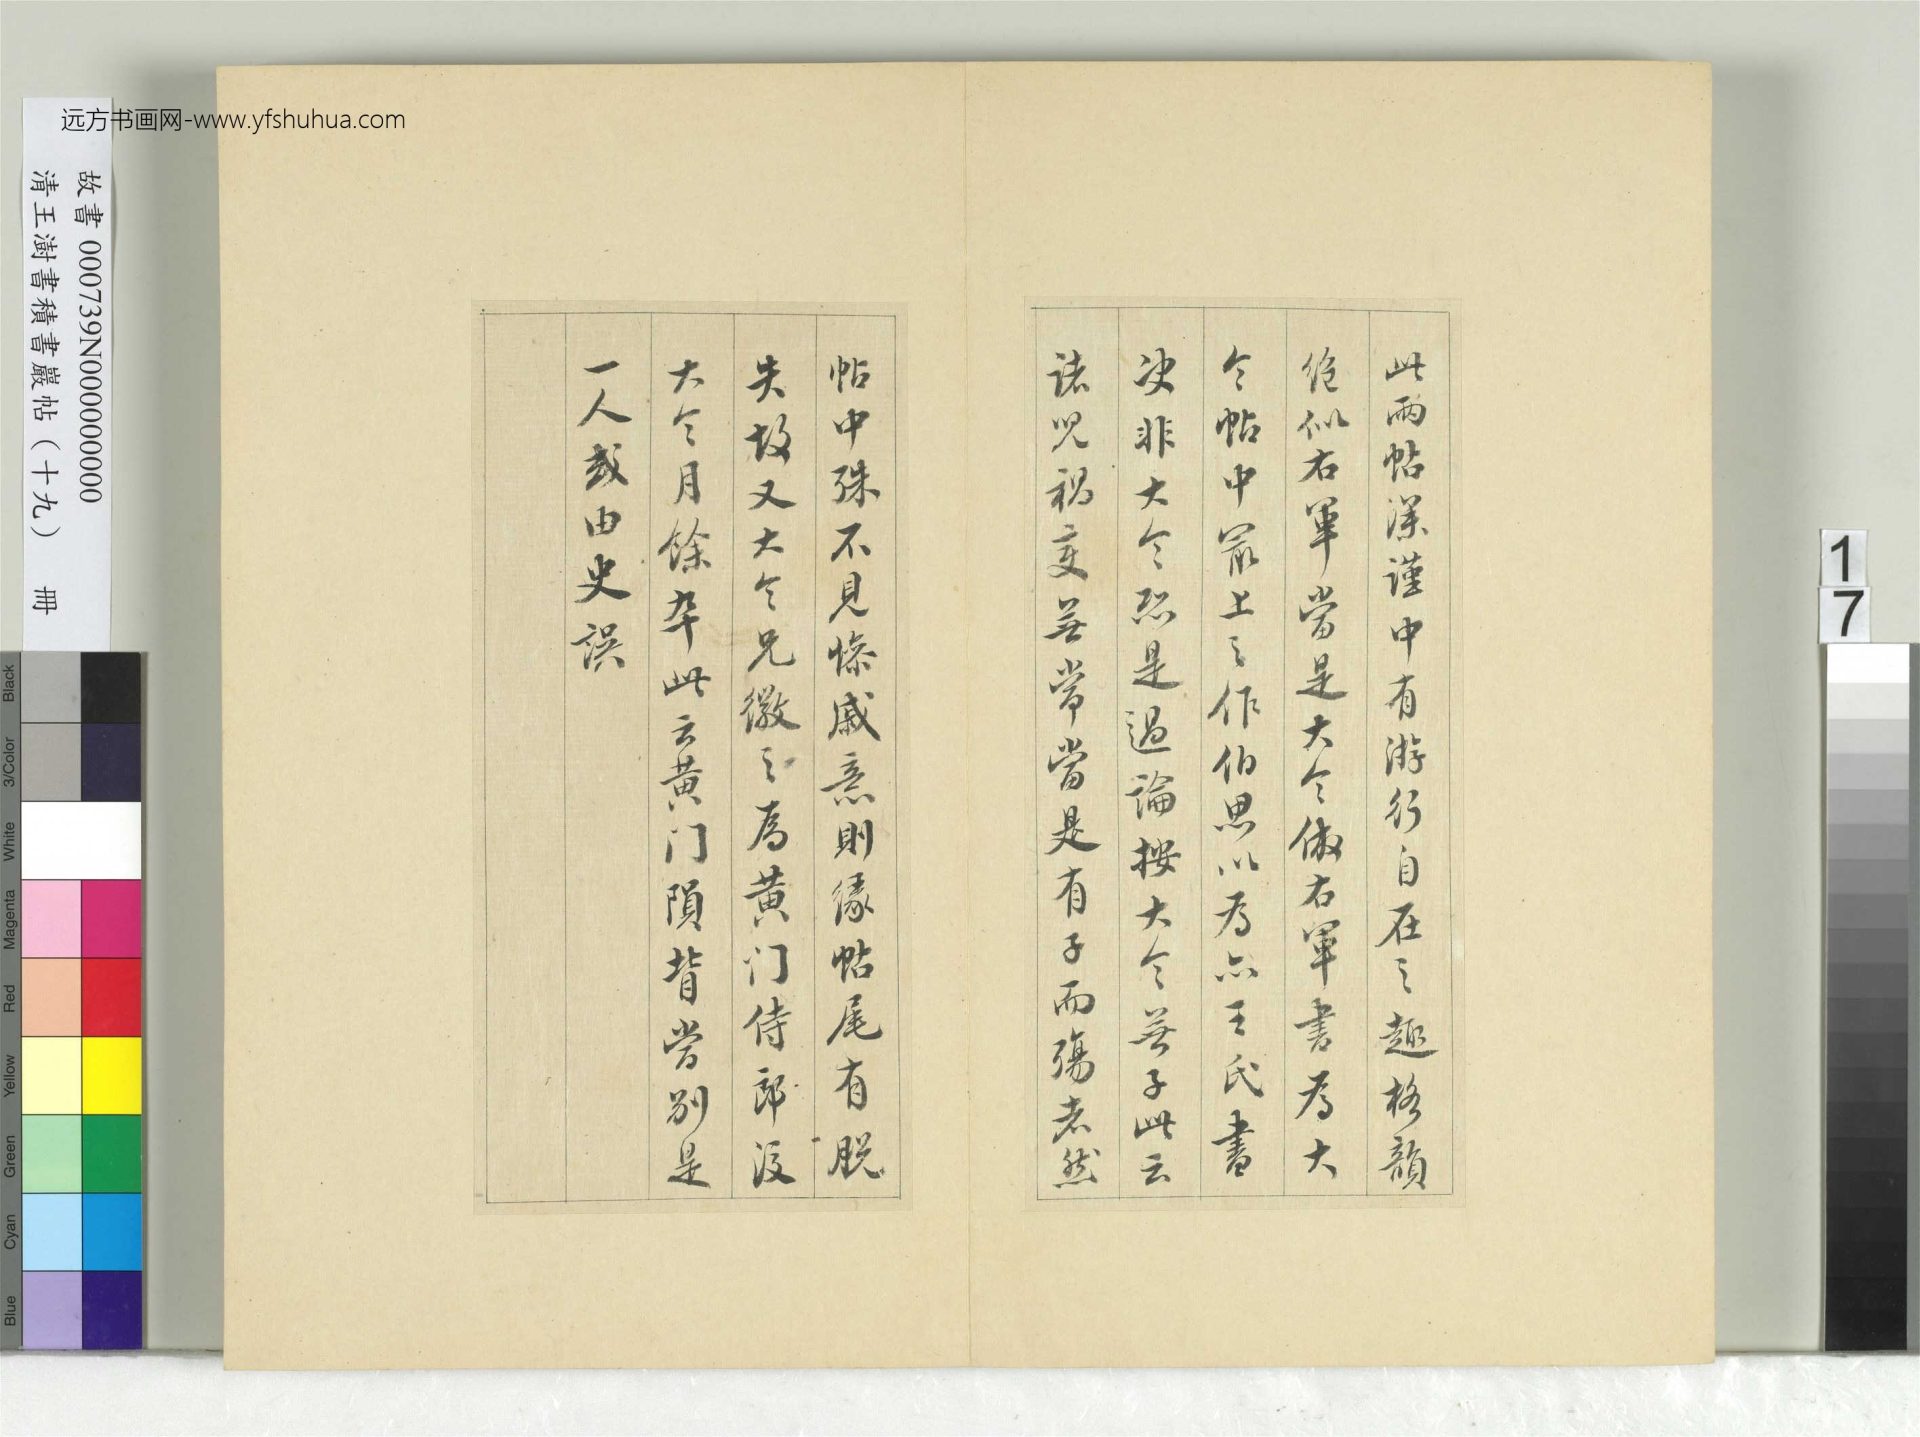 远方书画网-www.yfshuhua.com
故書 000739N000000000
清王澍書積書巖帖（十九） 冊
此兩帖深謹中有游行自在之趣格韻
絶似右軍當是大令倣右軍書為大
令帖中最上之作伯思以為亦王氏書
決非大令恐是過論按大令無子此云
諸兒禍變無常當是有子而殤者然
帖中殊不見慘戚意則緣帖尾有脫
失故又大令兄徽之為黄门侍郎沒
大令月餘卒此云黄门隕背當別是
一人或由史誤
Black
3/Color
White
Magenta
Red
Yellow
Green
Cyan
Blue
1
7